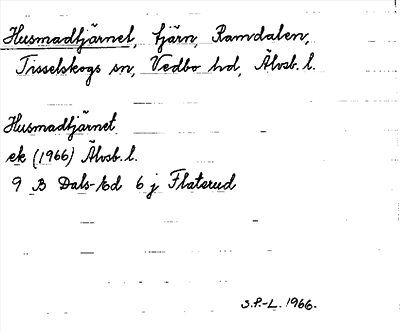 Husmadtjärnet, tjärn, Ramdalen,
Tisselskogs sn, Vedbo hd, Älvsb. l.
Husmadtjärnet
ek (1966) Älvsb. l.
9 B Dals-Ed 6 j Flaterud
S.F.-L. 1966.